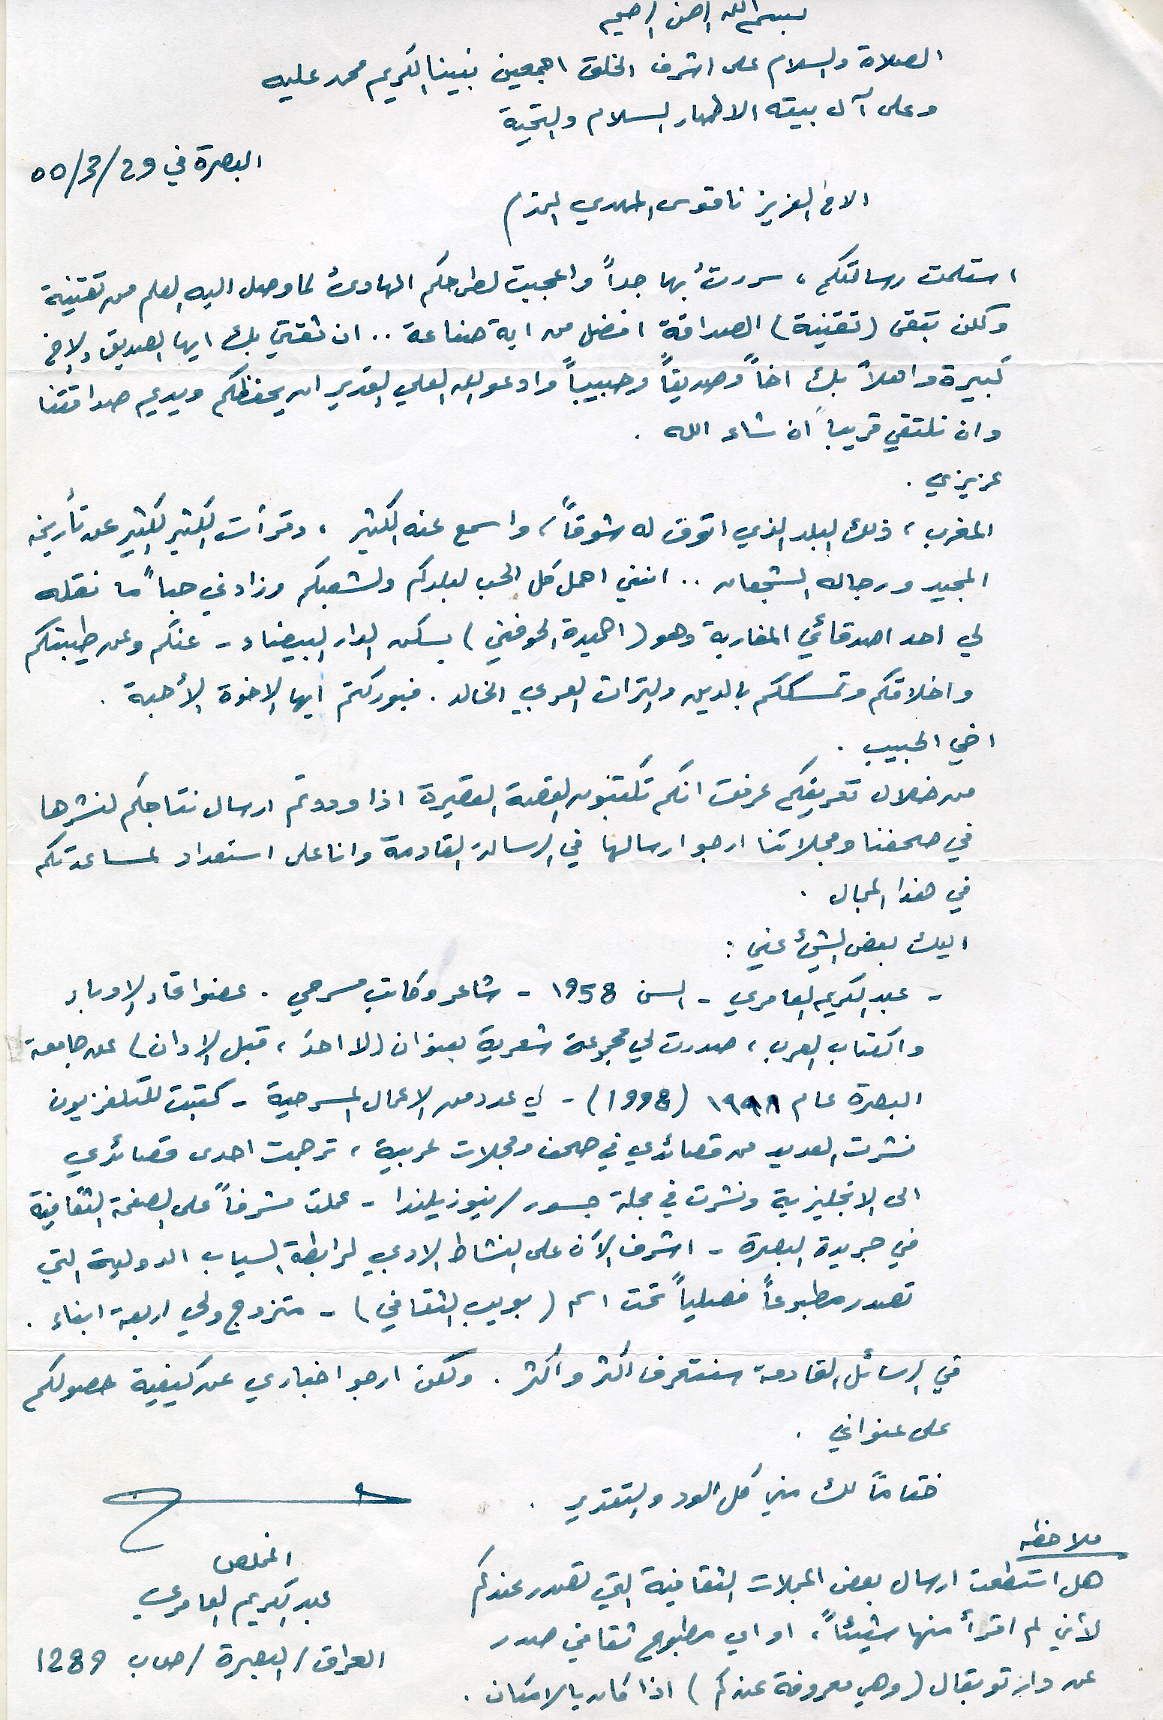 بسم الله الرحمن الرحيم
الصلاة والسلام على اشرف الخلق اجمعين نبينا الكريم محمد عليه
وعلى آل بيته الاطهار السلام والتحية
البصرة في 29/3/00
الاخ العزيز ناقوس المهدي المحترم
استلمت رسالتكم، سررتُ بها جداً واعجبت لطرحكم الهادئ لما وصل اليه العلم من تقنية
ولكن تبقى (تقنية) الصداقة افضل من اية صناعة .. ان ثقتي بك ايها الصديق والاخ
كبيرة واهلاً بك اخاً وصديقاً وحبيباً وادعو الله العلي القدير ان يحفظكم ويديم صداقتنا
وان نلتقي قريباً ان شاء الله .
عزيزي .
المغرب، ذلك البلد الذي اتوق له شوقاً، واسمع عنه الكثير ، وقرأت الكثير الكثير عن تأريخه
المجيد ورجاله الشجعان .. انني احمل كل الحب لبلدكم ولشعبكم وزادني حباً ما نقله
لي احد اصدقائي المغاربة وهو (احميدة الحوفني) يسكن الدار البيضاء - عنكم وعن طيبتكم
واخلاقكم وتمسككم بالدين والتراث العربي الخالد . فبوركتم ايها الاخوة الأحبة .
اخي الحبيب .
من خلال تعريفكم عرفت انكم تكتبون القصة القصيرة اذا وددتم ارسال نتاجكم لنشرها
في صحفنا ومجلاتنا ارجو ارسالها في الرسالة القادمة وانا على استعداد لمساعدتكم
في هذا المجال .
اليك بعض الشيء عني :
- عبد الكريم العامري - السن 1958 - شاعر وكاتب مسرحي . عضو اتحاد الادباء
والكتاب العرب، صدرت لي مجموعة شعرية بعنوان (لا احدَ، قبل الاوان) عن جامعة
البصرة عام ١٩٩٨ (1998) - لي عدد من الاعمال المسرحية - كتبت للتلفزيون
نشرت العديد من قصائدي في صحف ومجلات عربية، ترجمت احدى قصائدي
الى الانجليزية ونشرت في مجلة جسور/نيوزيلندا - عملت مشرفاً على الصفحة الثقافية
في جريدة البصرة - اشرف الآن على النشاط الادبي لرابطة السياب الدولية التي
تصدر مطبوعاً فصلياً تحت اسم (بويب الثقافي) - متزوج ولي اربعة ابناء .
في الرسائل القادمة سنتعرف اكثر واكثر . ولكن ارجو اخباري عن كيفية حصولكم
على عنواني .
ختاماً لك مني كل الود والتقدير .
المخلص
عبد الكريم العامري
العراق/البصرة/ص.ب 1289
ملاحظة
هل استطعت ارسال بعض المجلات الثقافية التي تصدر عندكم
لأني لم اقرأ منها شيئاً، او اي مطبوع ثقافي صدر
عن دار توبقال (وهي معروفة عندكم) اذا كان بالامكان .